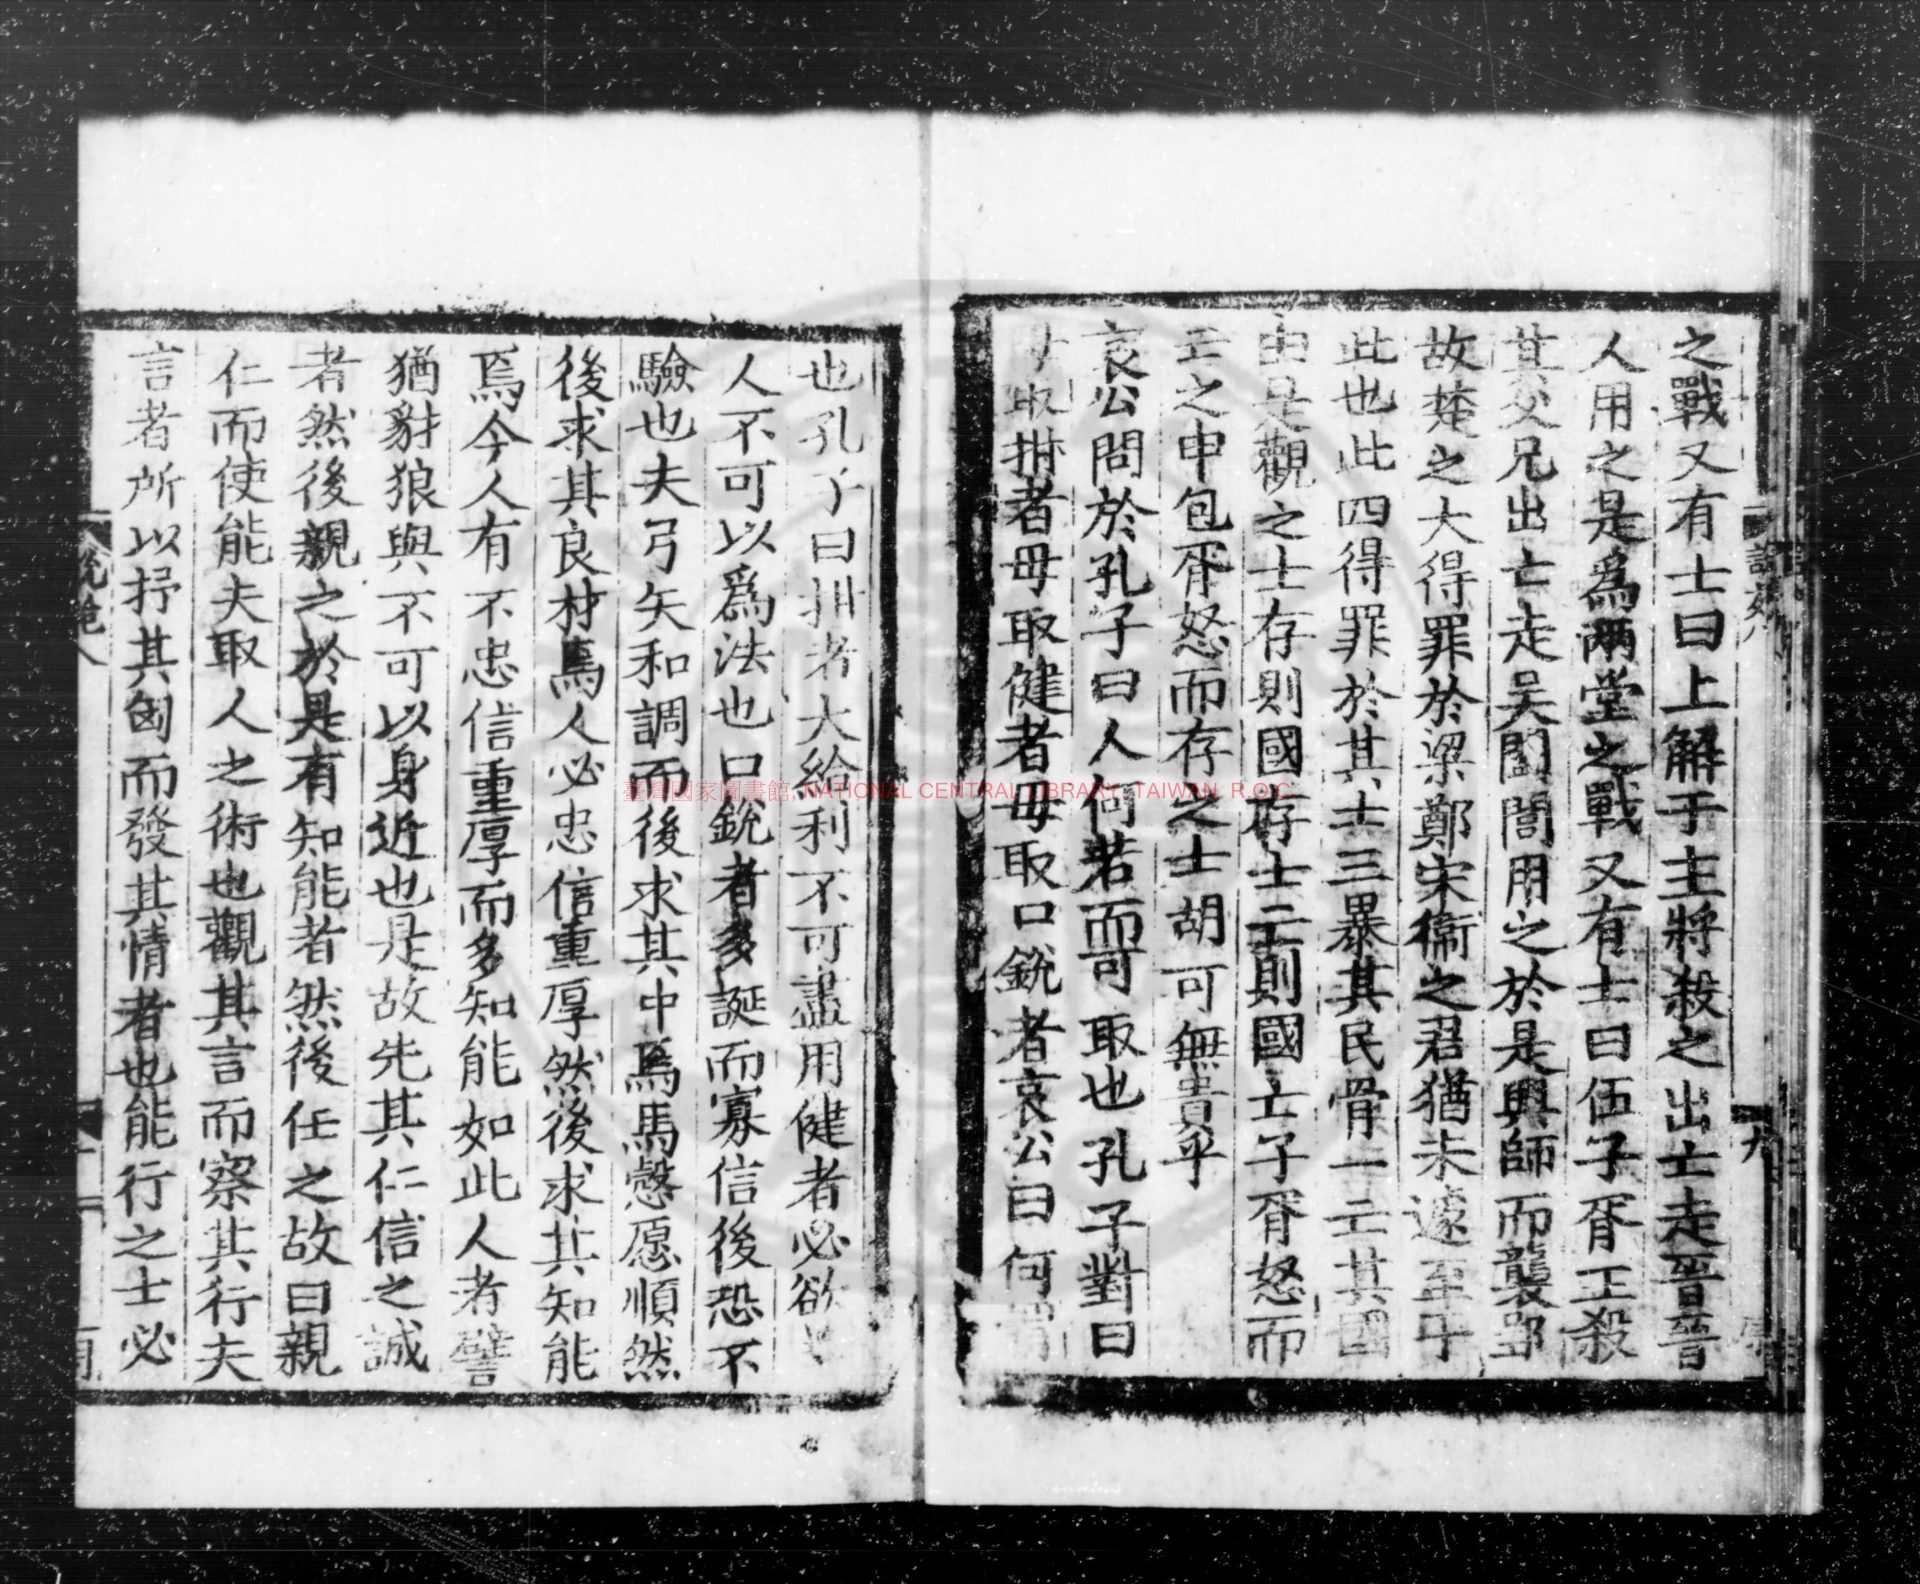 之戰又有士曰上解于主將殺之出士走晉晉
人用之是爲兩堂之戰又有士曰伍子胥王殺
其父兄出亡走吴闔閭用之於是興師而襲郢
故楚之大得罪於梁鄭宋衞之君猶未遽至乎
此也此四得罪於其士三暴其民骨一亡其國
由是觀之士存則國存士亡則國亡子胥怒而
亡之申包胥怒而存之士胡可無貴乎
哀公問於孔子曰人何若而可取也孔子對曰
毋取拑者毋取健者毋取口銳者哀公曰何謂
九
也孔子曰拑者大給利不可盡用健者必欲
人不可以爲法也口銳者多誕而寡信後恐不
驗也夫弓矢和調而後求其中焉馬慤愿順然
後求其良材焉人必忠信重厚然後求其知能
焉今人有不忠信重厚而多知能如此人者譬
猶豺狼與不可以身近也是故先其仁信之誠
者然後親之於是有知能者然後任之故曰親
仁而使能夫取人之術也觀其言而察其行夫
言者所以抒其匈而發其情者也能行之士必
說苑八
臺灣國家圖書館, NATIONAL CENTRAL LIBRARY, TAIWAN, R.O.C